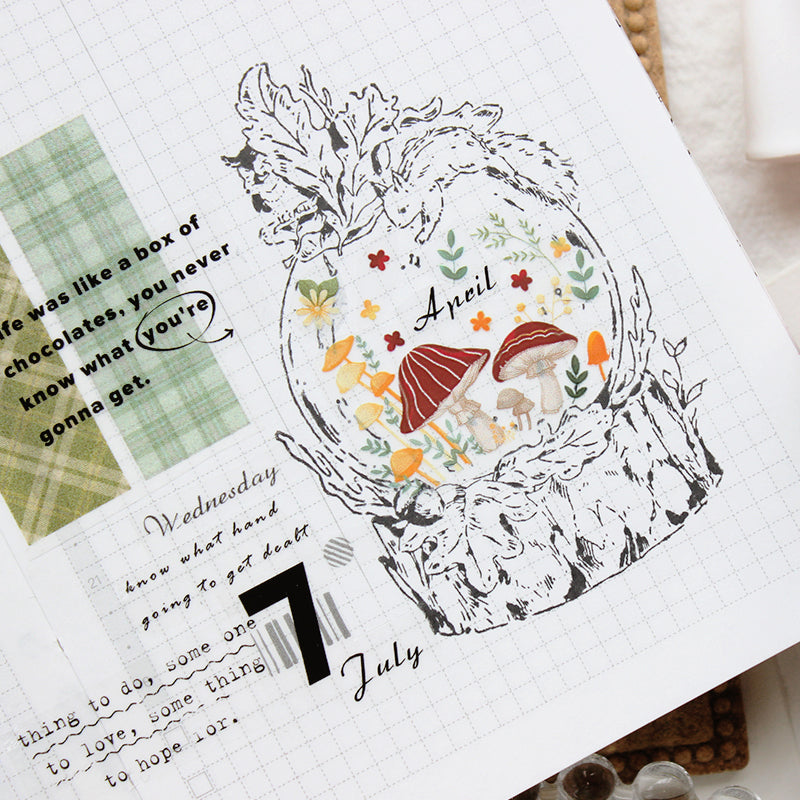 ife was like a box of
chocolates, you never
know what you're
gonna get.
April
Wednesday
know what hand
going to get dealt
21
7
July
thing to do, some one
to love, some thing
to hope for.